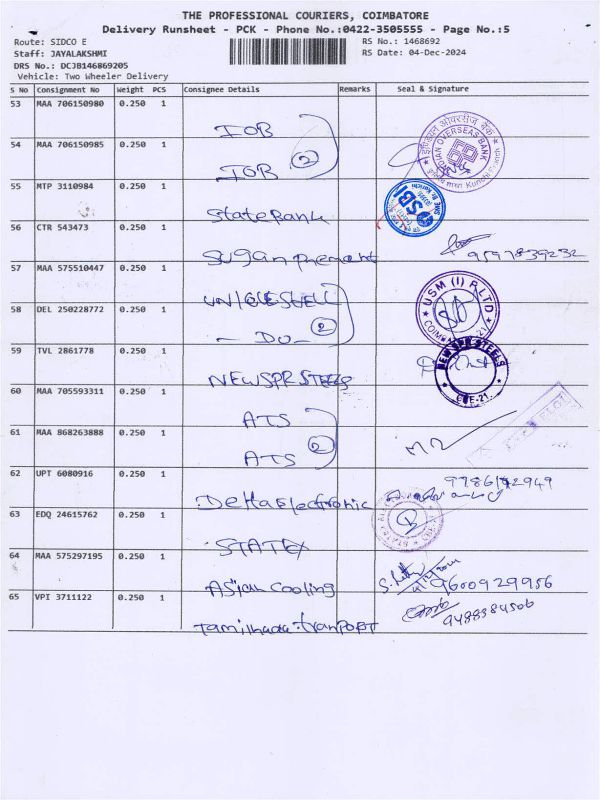 THE PROFESSIONAL COURIERS, COIMBATORE
Delivery Runsheet - PCK - Phone No.:0422-3505555 - Page No.:5
Route: SIDCO E
RS No.: 1468692
Staff: JAYALAKSHMI
RS Date: 04-Dec-2024
DRS No.: DCJB146869205
Vehicle: Two Wheeler Delivery
S No Consignment No Weight PCS Consignee Details Remarks Seal & Signature
53 MAA 706150980 0.250 1
IOB
54 MAA 706150985 0.250 1
IOB 2
INDIAN OVERSEAS BANK
55 MTP 3110984 0.250 1
State Bank
SBI
56 CTR 543473 0.250 1
Sugan
9597839232
57 MAA 575510447 0.250 1
USM (I) P LTD
58 DEL 250228772 0.250 1
- DO - 2
59 TVL 2861778 0.250 1
NEWSPR STEELS
NEW SPR STEELS
CBE-21.
60 MAA 705593311 0.250 1
ATS
61 MAA 868263888 0.250 1
ATS 2
62 UPT 6080916 0.250 1
Delta Electronic
63 EDQ 24615762 0.250 1
STATEX
64 MAA 575297195 0.250 1
Asian Cooling
9600929956
65 VPI 3711122 0.250 1
9488384506